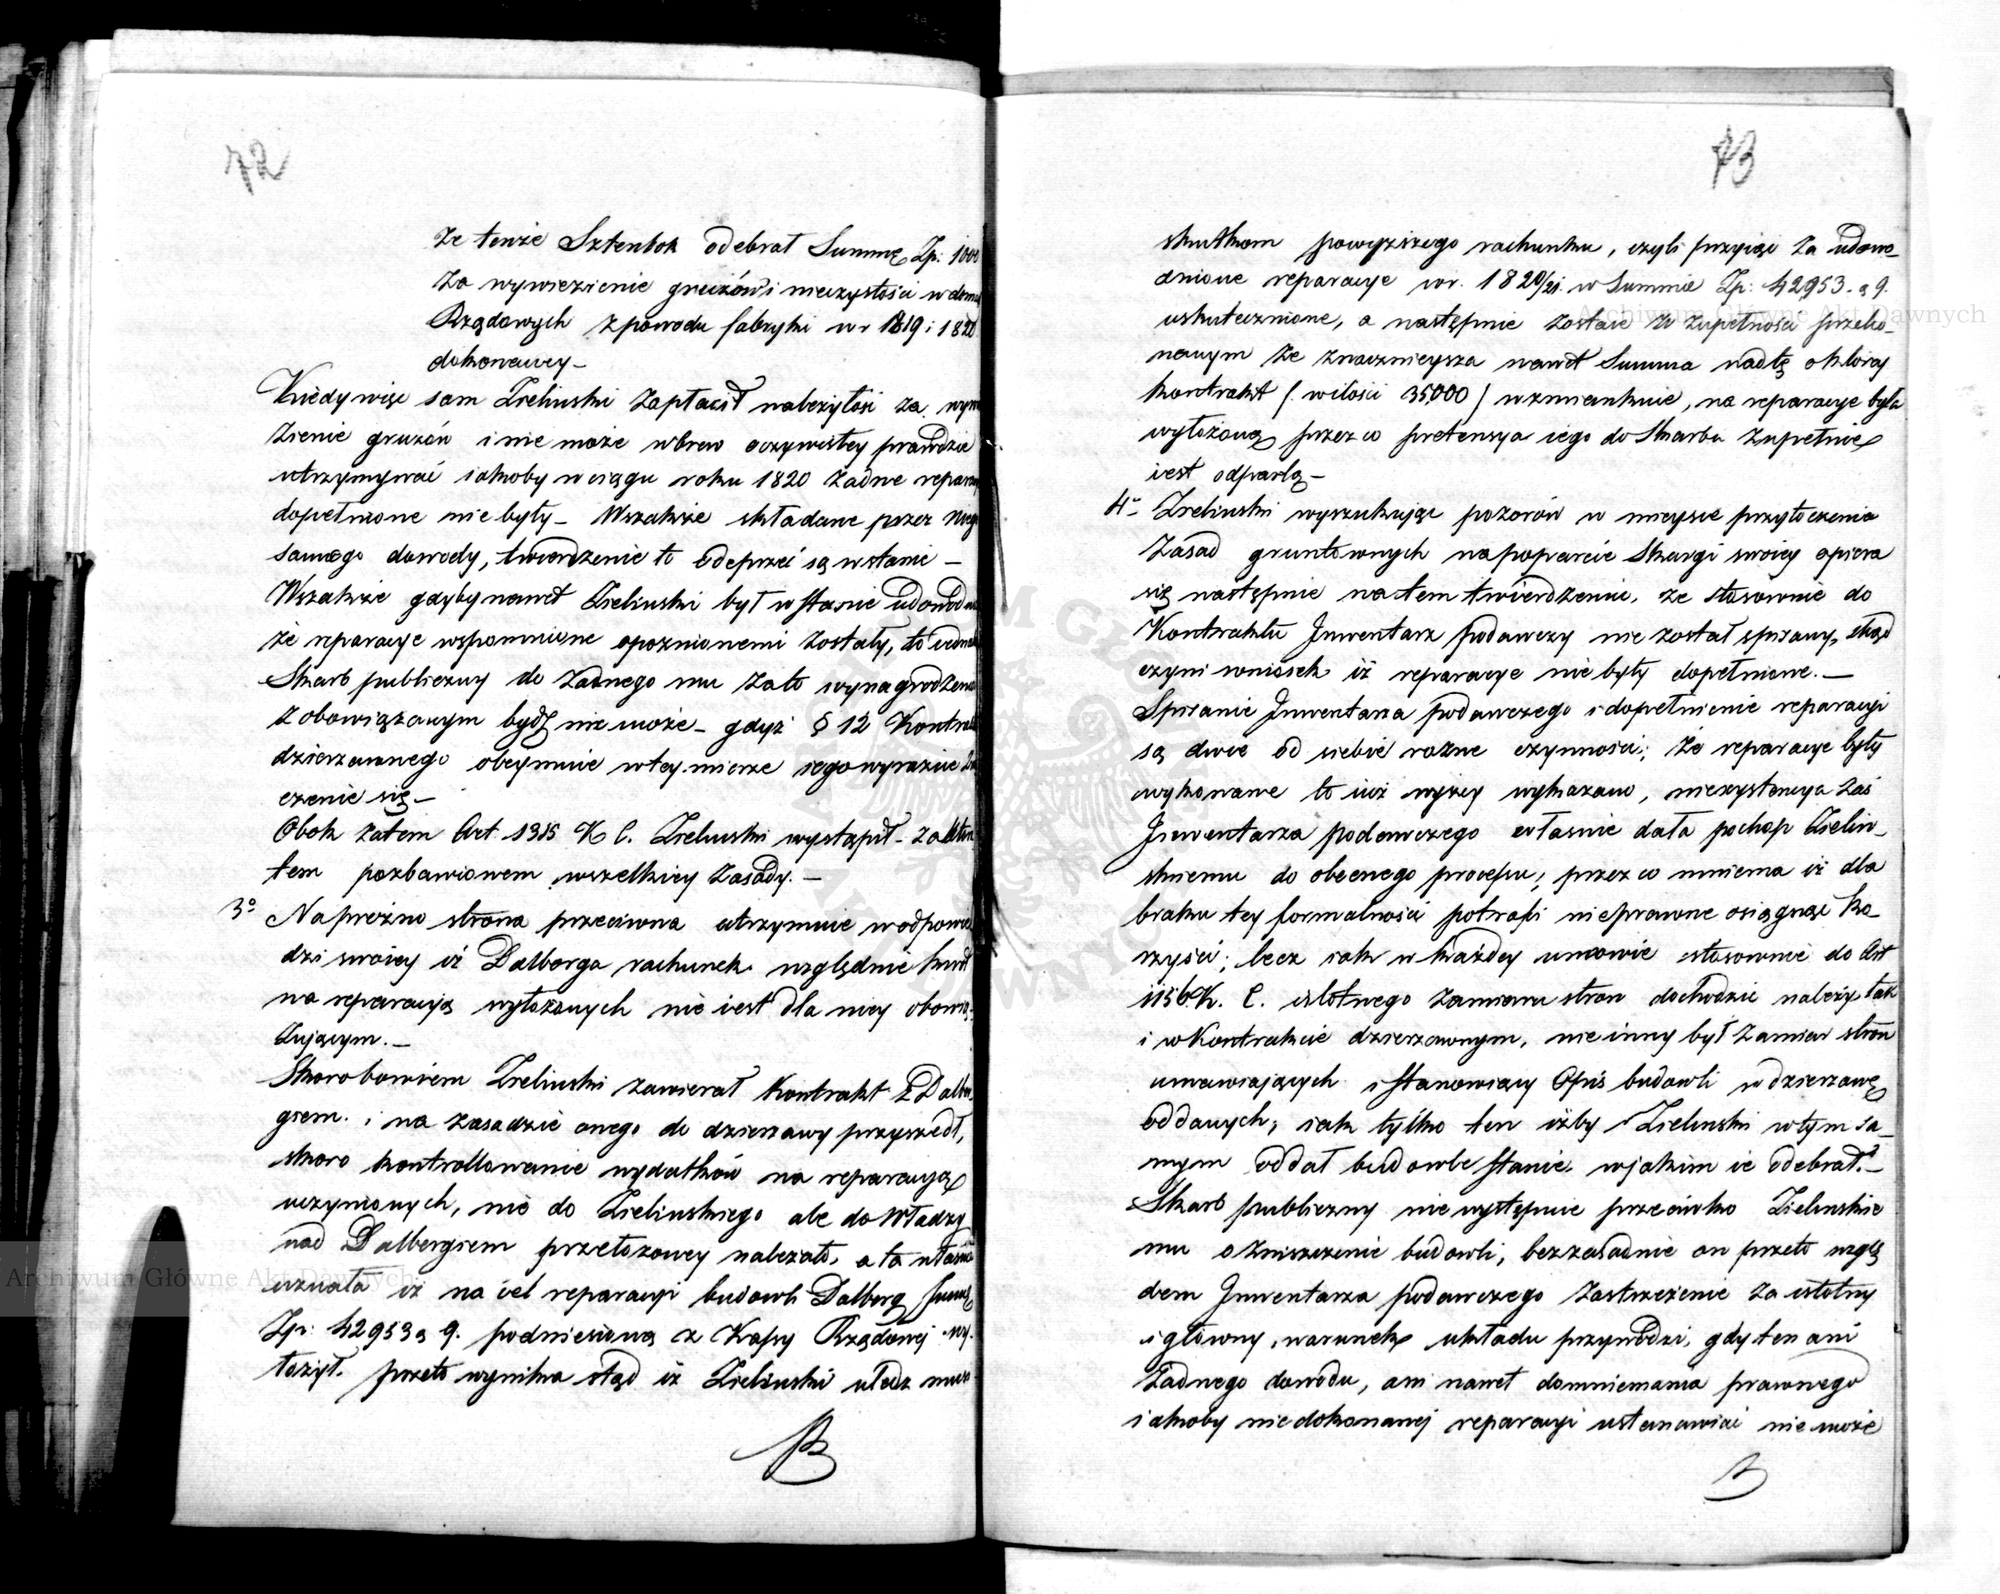 72
że tenże Sztenbok odebrał Summę Zp: 1000
za wywiezienie gruzów i nieczystości w domu
Rządowych z powodu fabryki w r 1819 i 1820
dokonaney_
Kiedy więc sam Zieliński zapłacił należytość za
zienie gruzów i nie może wbrew oczywistey prawdzie
utrzymywać iakoby w ciągu roku 1820 żadne repara
dopełnione nie były_ Wszakże składane przez niego
samego dowody, twierdzenie to odeprzeć są w stanie_
Wszakże gdyby nawet Zieliński był w stanie udowod
że reparacye wspomnione opoznionemi zostały, to iedna
Skarb publiczny do żadnego mu za to wynagrodzenia
zobowiązanym bydź nie może_ gdyż § 12 Kontra
dzierzawnego obeymuie w tey mierze iego wyraźnie
czenie się_
Obok zatem Art. 1315 K C. Zieliński wystąpił_
tem pozbawionem wszelkiey zasady._
3° Napróżno strona przeciwna utrzymuie w odpowie
dzi swoiey iż Dalberga rachunek względnie
na reparacyą wyłożonych nie iest dla niey obowią
zuiącym._
Skorobowiem Zieliński zawierał Kontrakt z Dalber
giem. i na zasadzie onego do dzierzawy przyszedł,
skoro kontrollowanie wydatków na reparacyą
uczynionych, nie do Zielińskiego ale do Władzy
nad Dalbergiem przełożoney należało, a ta właśnie
uznała iż na cel reparacyi budowli Dalberg Summę
Zp: 42953 g 9. podniesioną z Kassy Rządowej wy_
łożył. przeto wynika stąd iż Zieliński uledz musi
73
skutkom powyższego rachunku, czyli przyiąć za udowo_
dnione reparacye w r. 1820/21. w Summie Zp: 42953. g 9.
uskutecznione, a następnie zostać w zupełności przeko_
nanym że znacznieysza nawet Summa nad tę o któréy
kontrakt (w ilości 35000) wzmiankuie, na reparacye była
wyłożoną przez co pretensya iego do Skarbu zupełnie
iest odpartą_
4°_ Zieliński wyszukując pozorów w mieysce przytoczenia
zasad gruntownych na poparcie Skargi swoiey opiera
się następnie na tem twierdzeniu, że stosownie do
Kontraktu Inwentarz podawczy nie został spisany, skąd
czyni wniosek iż reparacye nie były dopełnione._
Spisanie Inwentarza podawczego i dopełnienie reparacyi
są dwie od siebie rózne czynności; że reparacye były
wykonane to iuż wyżey wykazano, nieexystencya zaś
Inwentarza podawczego właśnie dała pochop Zieliń_
skiemu do obecnego procesu; przez co mniema iż dla
braku tey formalności potrafi nieprawne osiągnąć ko_
rzyści; lecz iak w każdey umowie stosownie do Art
1156 K. C. istotnego zamiaru stron dochodzić należy tak
i w Kontrakcie dzierzawnym, nie inny był zamiar stron
umawiających i stanowiący Opis budowli w dzierzawę
oddanych, iak tylko ten iżby Zieliński w tym sa_
mym oddał budowle stanie, w jakim ie odebrał._
Skarb publiczny nie występuie przeciwko Zielińskie
mu o zniszczenie budowli, bezzasadnie on przeto wzglę
dem Inwentarza podawczego zastrzeżenie za istotny
i główny, warunek układu przywodzi, gdy ten ani
żadnego dowodu, ani nawet domniemania prawnego
iakoby niedokonanej reparacyi ustanawiać nie może
Archiwum Główne Akt Dawnych
Archiwum Główne Akt Dawnych